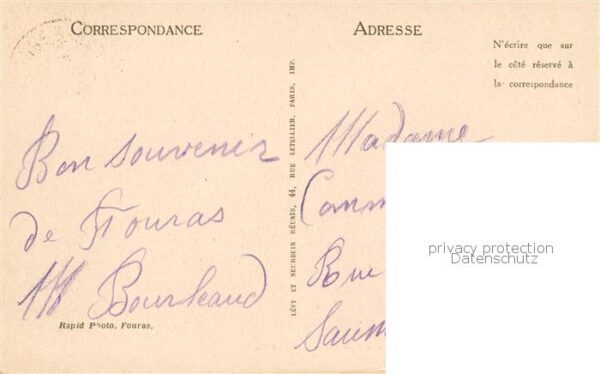 CORRESPONDANCE
ADRESSE
N'écrire que sur
le côté réservé à
la correspondance
Bon souvenir
de Fouras
Rapid Photo, Fouras.
LÉVY ET NEURDEIN RÉUNIS, 44, RUE LETELLIER, PARIS, IMP.
Madame
Rue
privacy protection
Datenschutz